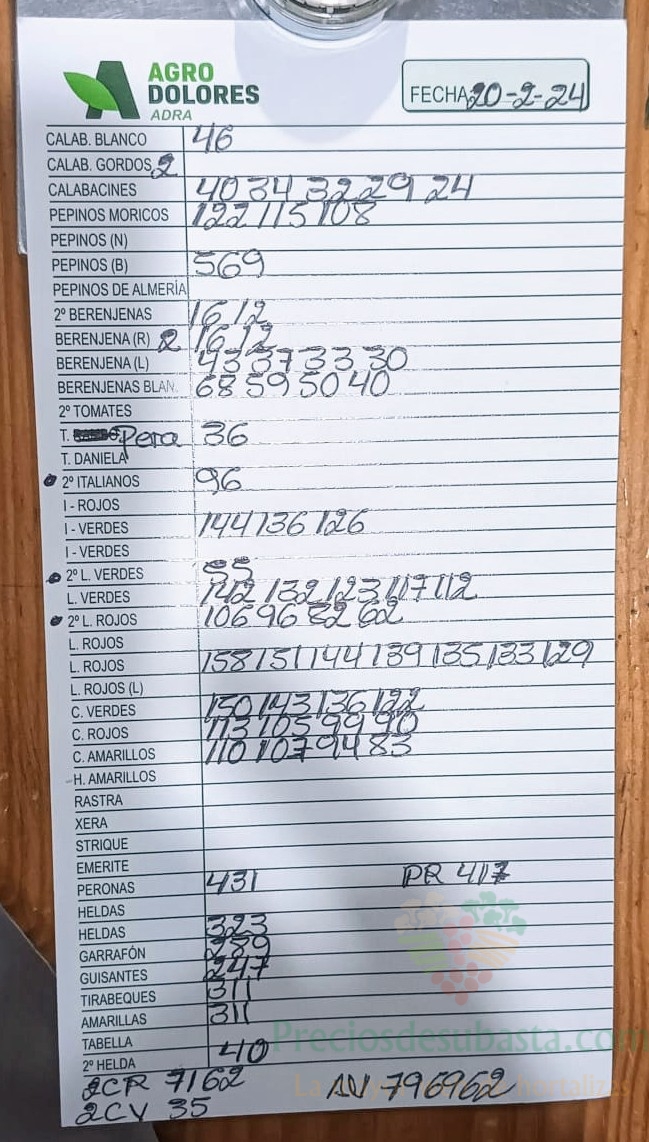 AGRO
DOLORES
ADRA
FECHA 20-2-24
CALAB. BLANCO 46
CALAB. GORDOS 2
CALABACINES 40 34 32 29 24
PEPINOS MORICOS 122 115 108
PEPINOS (N)
PEPINOS (B) 569
PEPINOS DE ALMERÍA
2º BERENJENAS 16 12
BERENJENA (R) 2 16 12
BERENJENA (L) 43 37 33 30
BERENJENAS BLAN. 68 59 50 40
2º TOMATES
T. Pera 36
T. DANIELA
2º ITALIANOS 96
I - ROJOS
I - VERDES 144 136 126
I - VERDES
2º L. VERDES 55
L. VERDES 142 132 123 117 112
2º L. ROJOS 106 96 82 62
L. ROJOS
L. ROJOS 158 151 144 139 135 133 129
L. ROJOS (L)
C. VERDES 150 143 136 122
C. ROJOS 113 105 99 90
C. AMARILLOS 110 107 94 83
H. AMARILLOS
RASTRA
XERA
STRIQUE
EMERITE
PERONAS 431 PR 417
HELDAS
HELDAS 323
GARRAFÓN 289
GUISANTES 247
TIRABEQUES 311
AMARILLAS 311
TABELLA
2º HELDA 40
2CR 7162 AV 796962
2CV 35
Preciosdesubasta.com